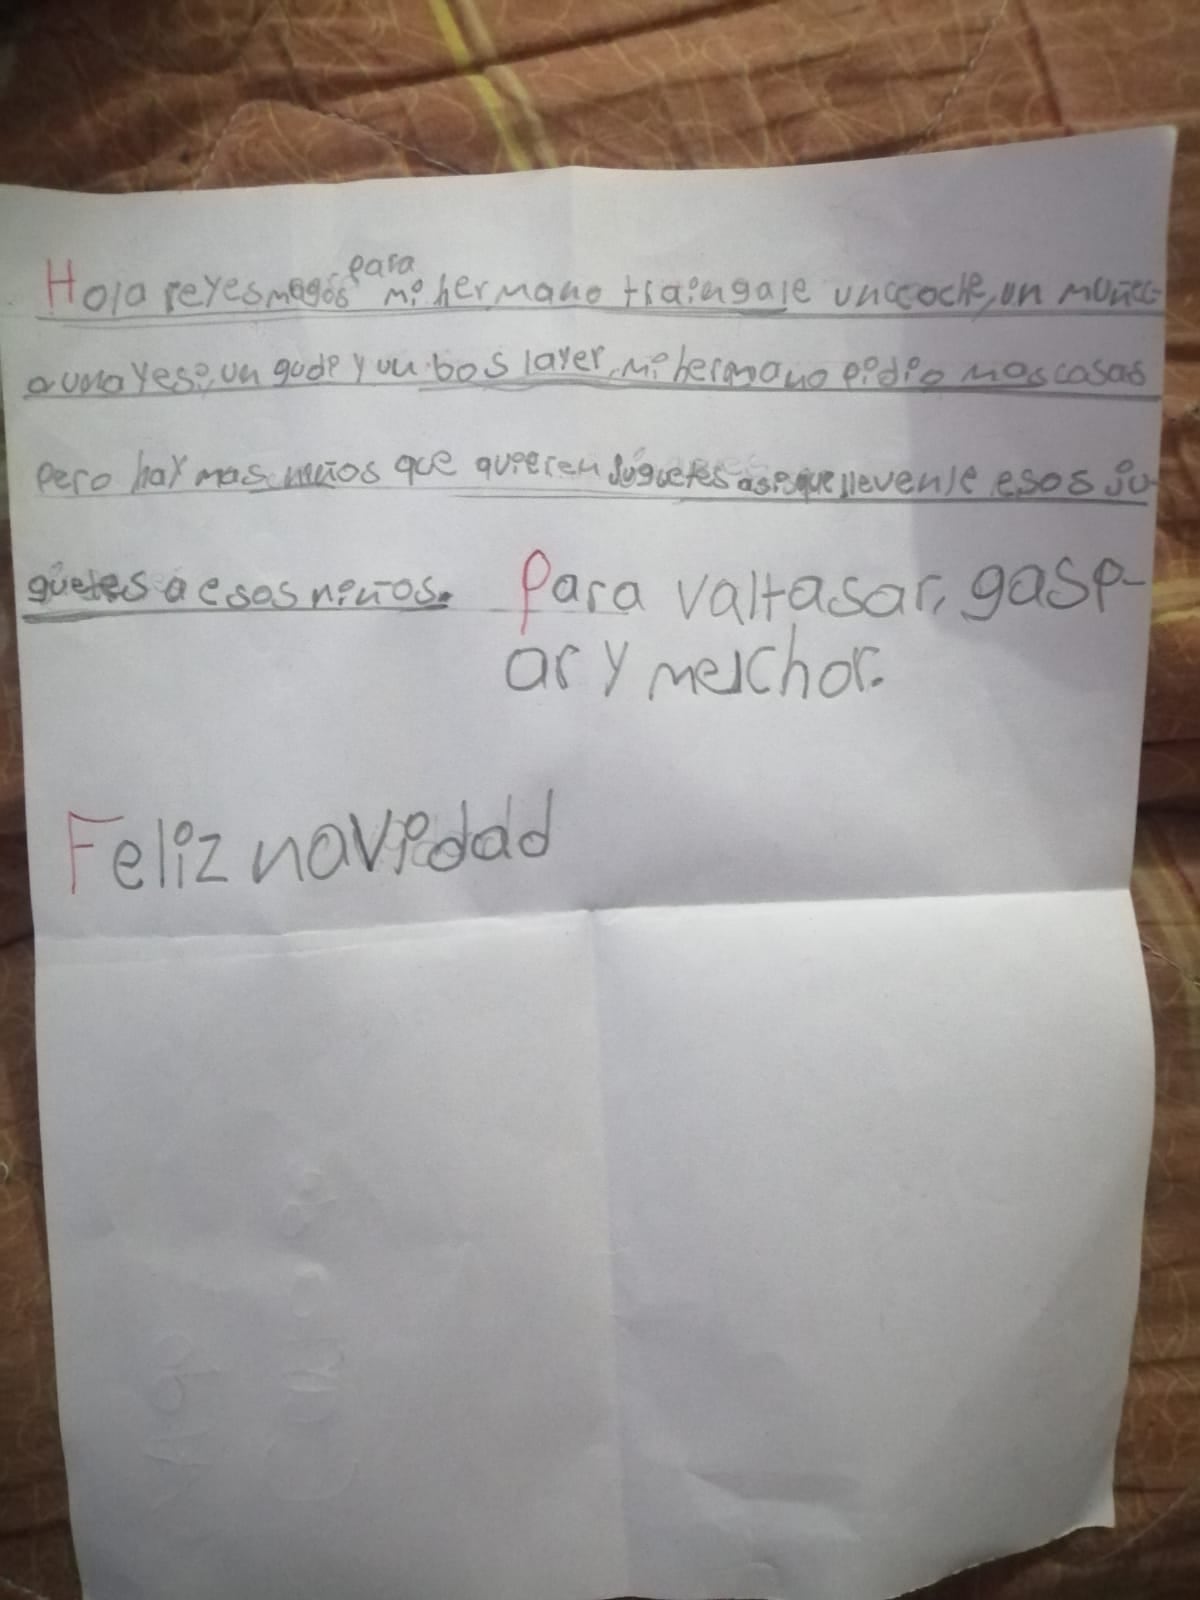 Hola reyes magos para mi hermano traingale un coche, un muñec-
o una yesi, un gudi y un bos layer, mi hermano pidio mas casas
pero hay mas niños que quieren juguetes asi que llevenle esos ju-
guetes a esos niños. Para valtasar, gasp-
ar y melchor.
Feliz navidad